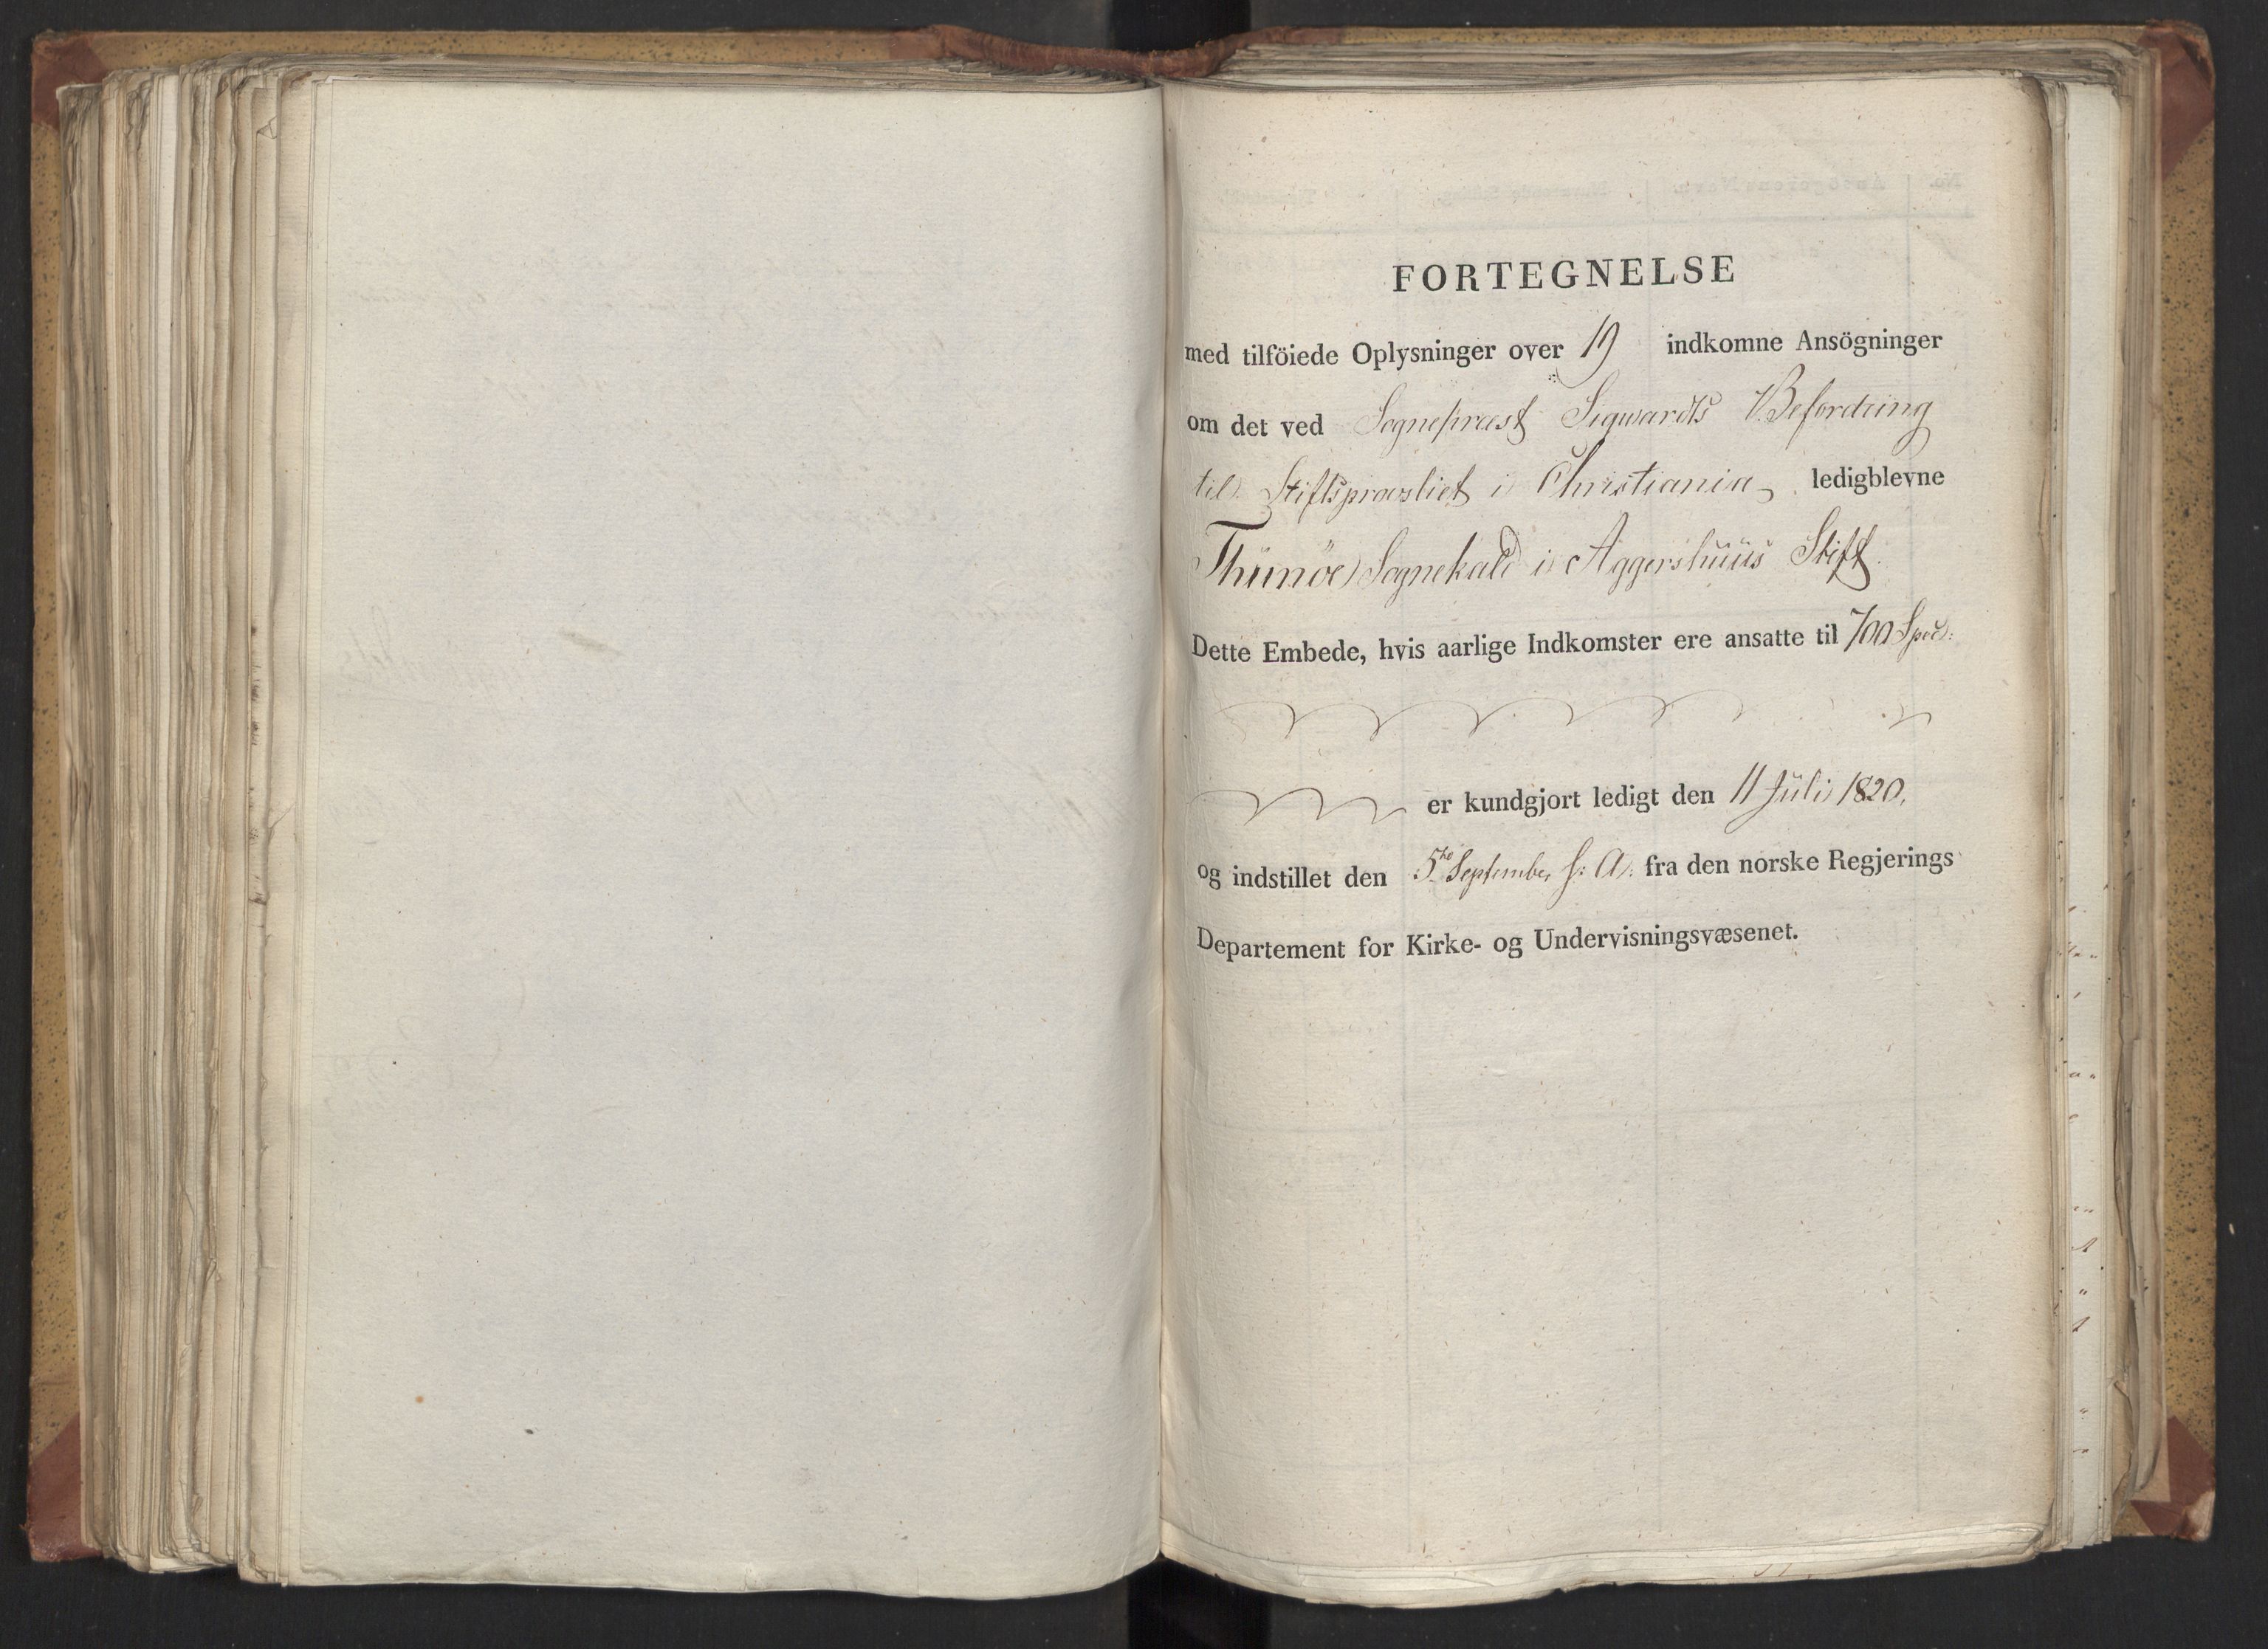 FORTEGNELSE
med tilföiede Oplysninger over 19 indkomne Ansögninger
om det ved Sognepræst Sigwardts Befordring
til Stiftsprovstiet i Christiania, ledigblevne
Thünöe Sognekald i Aggershuus Stift.
Dette Embede, hvis aarlige Indkomster ere ansatte til 700 Spd:
er kundgjort ledigt den 11 Juli 1820,
og indstillet den 5te September s: A: fra den norske Regjerings
Departement for Kirke- og Undervisningsvæsenet.